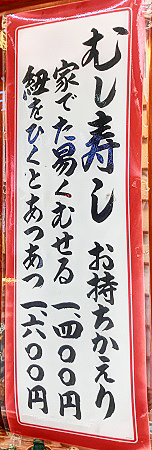 むし寿し お持ちかえり
家でた易くむせる 一、四〇〇円
紐をひくとあつあつ 一、六〇〇円